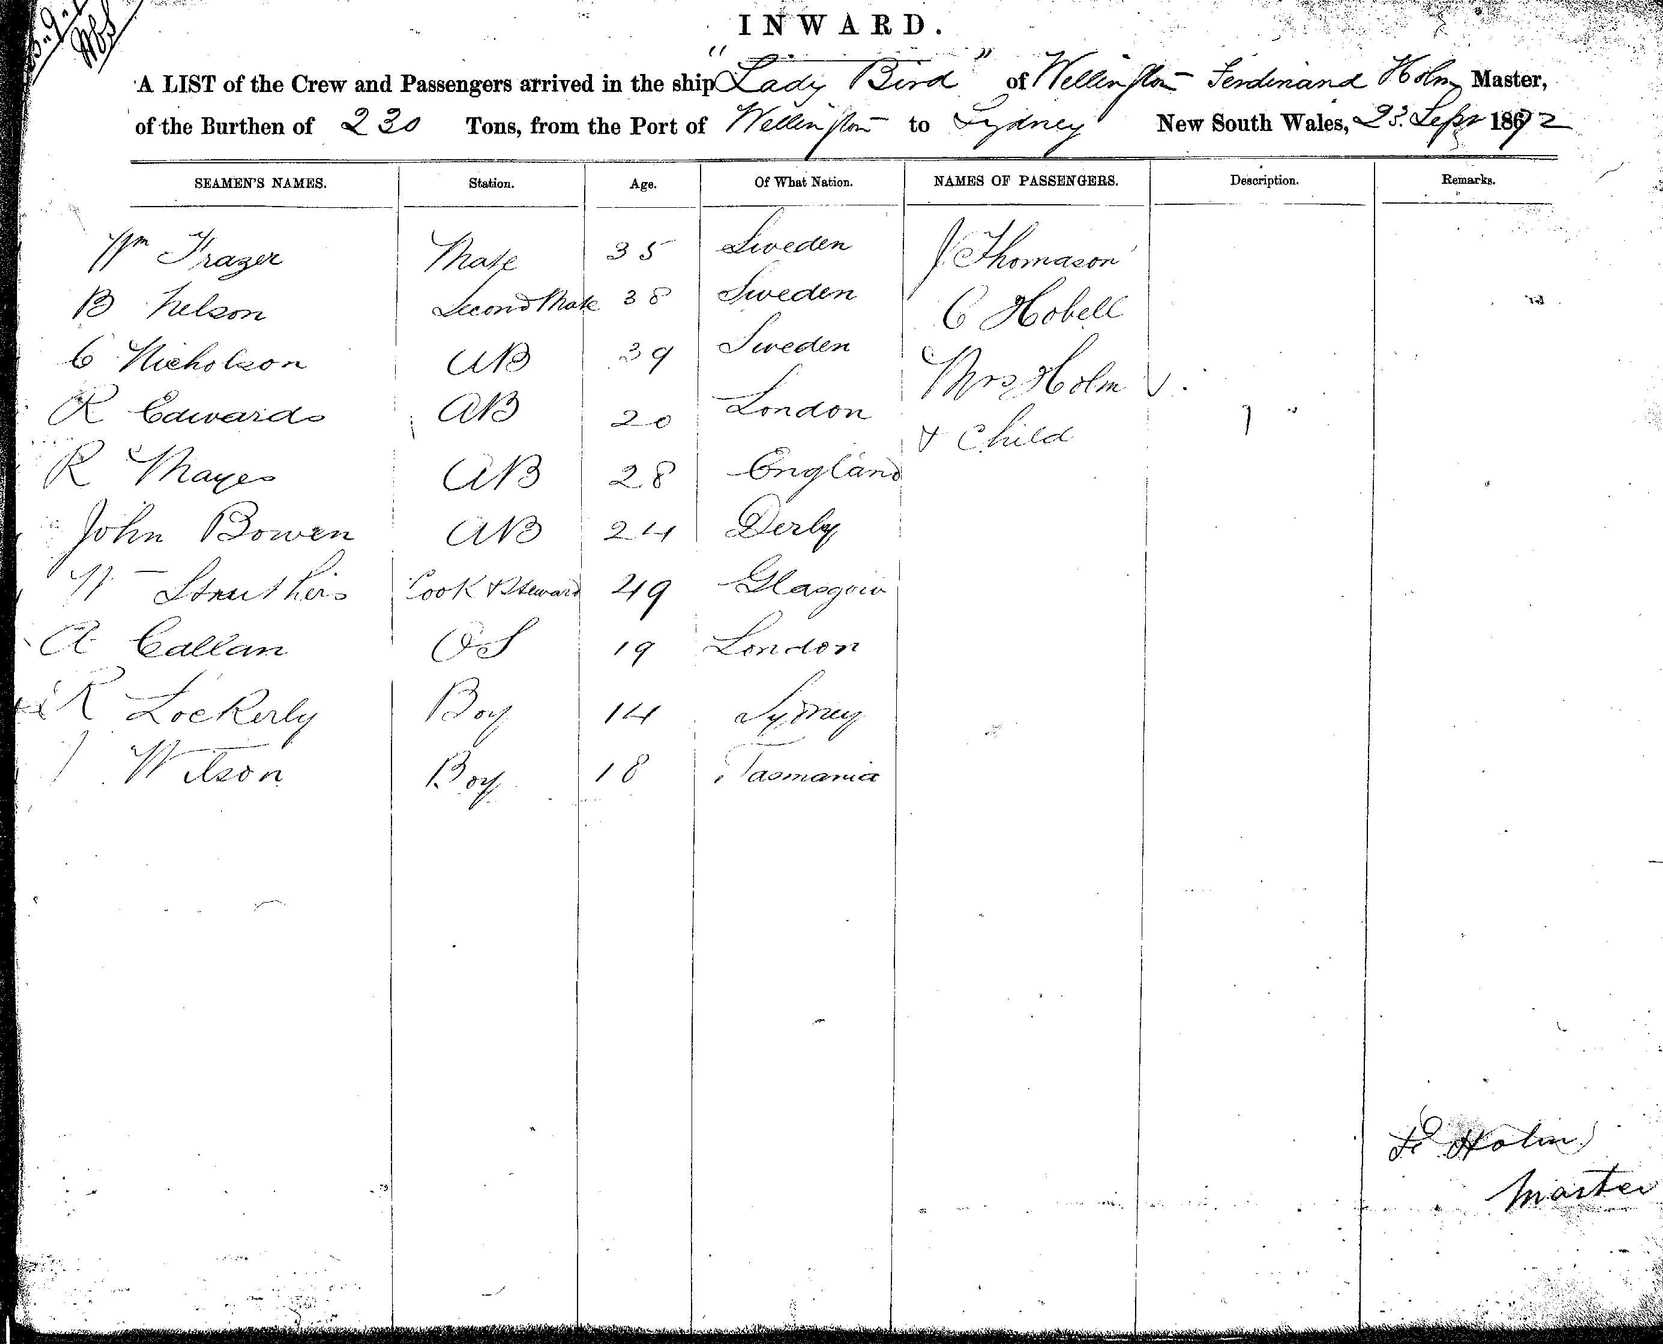 INWARD.
A LIST of the Crew and Passengers arrived in the ship "Lady Bird" of Wellington Ferdinand Holm Master,
of the Burthen of 230 Tons, from the Port of Wellington to Sydney New South Wales, 23. Sepr 1872
SEAMEN'S NAMES. Station. Age. Of What Nation. NAMES OF PASSENGERS. Description. Remarks.
Wm Frazer Mate 35 Sweden J Thomason
B Nelson Second Mate 38 Sweden C Hobell
C Nicholson AB 39 Sweden Mrs Holm
R Edwards AB 20 London & Child
R Mayes AB 28 England
John Bowen AB 24 Derby
W Struthers Cook & Steward 49 Glasgow
A Callan OS 19 London
R Lockerly Boy 14 Sydney
Wilson Boy 18 Tasmania
F Holm
Master